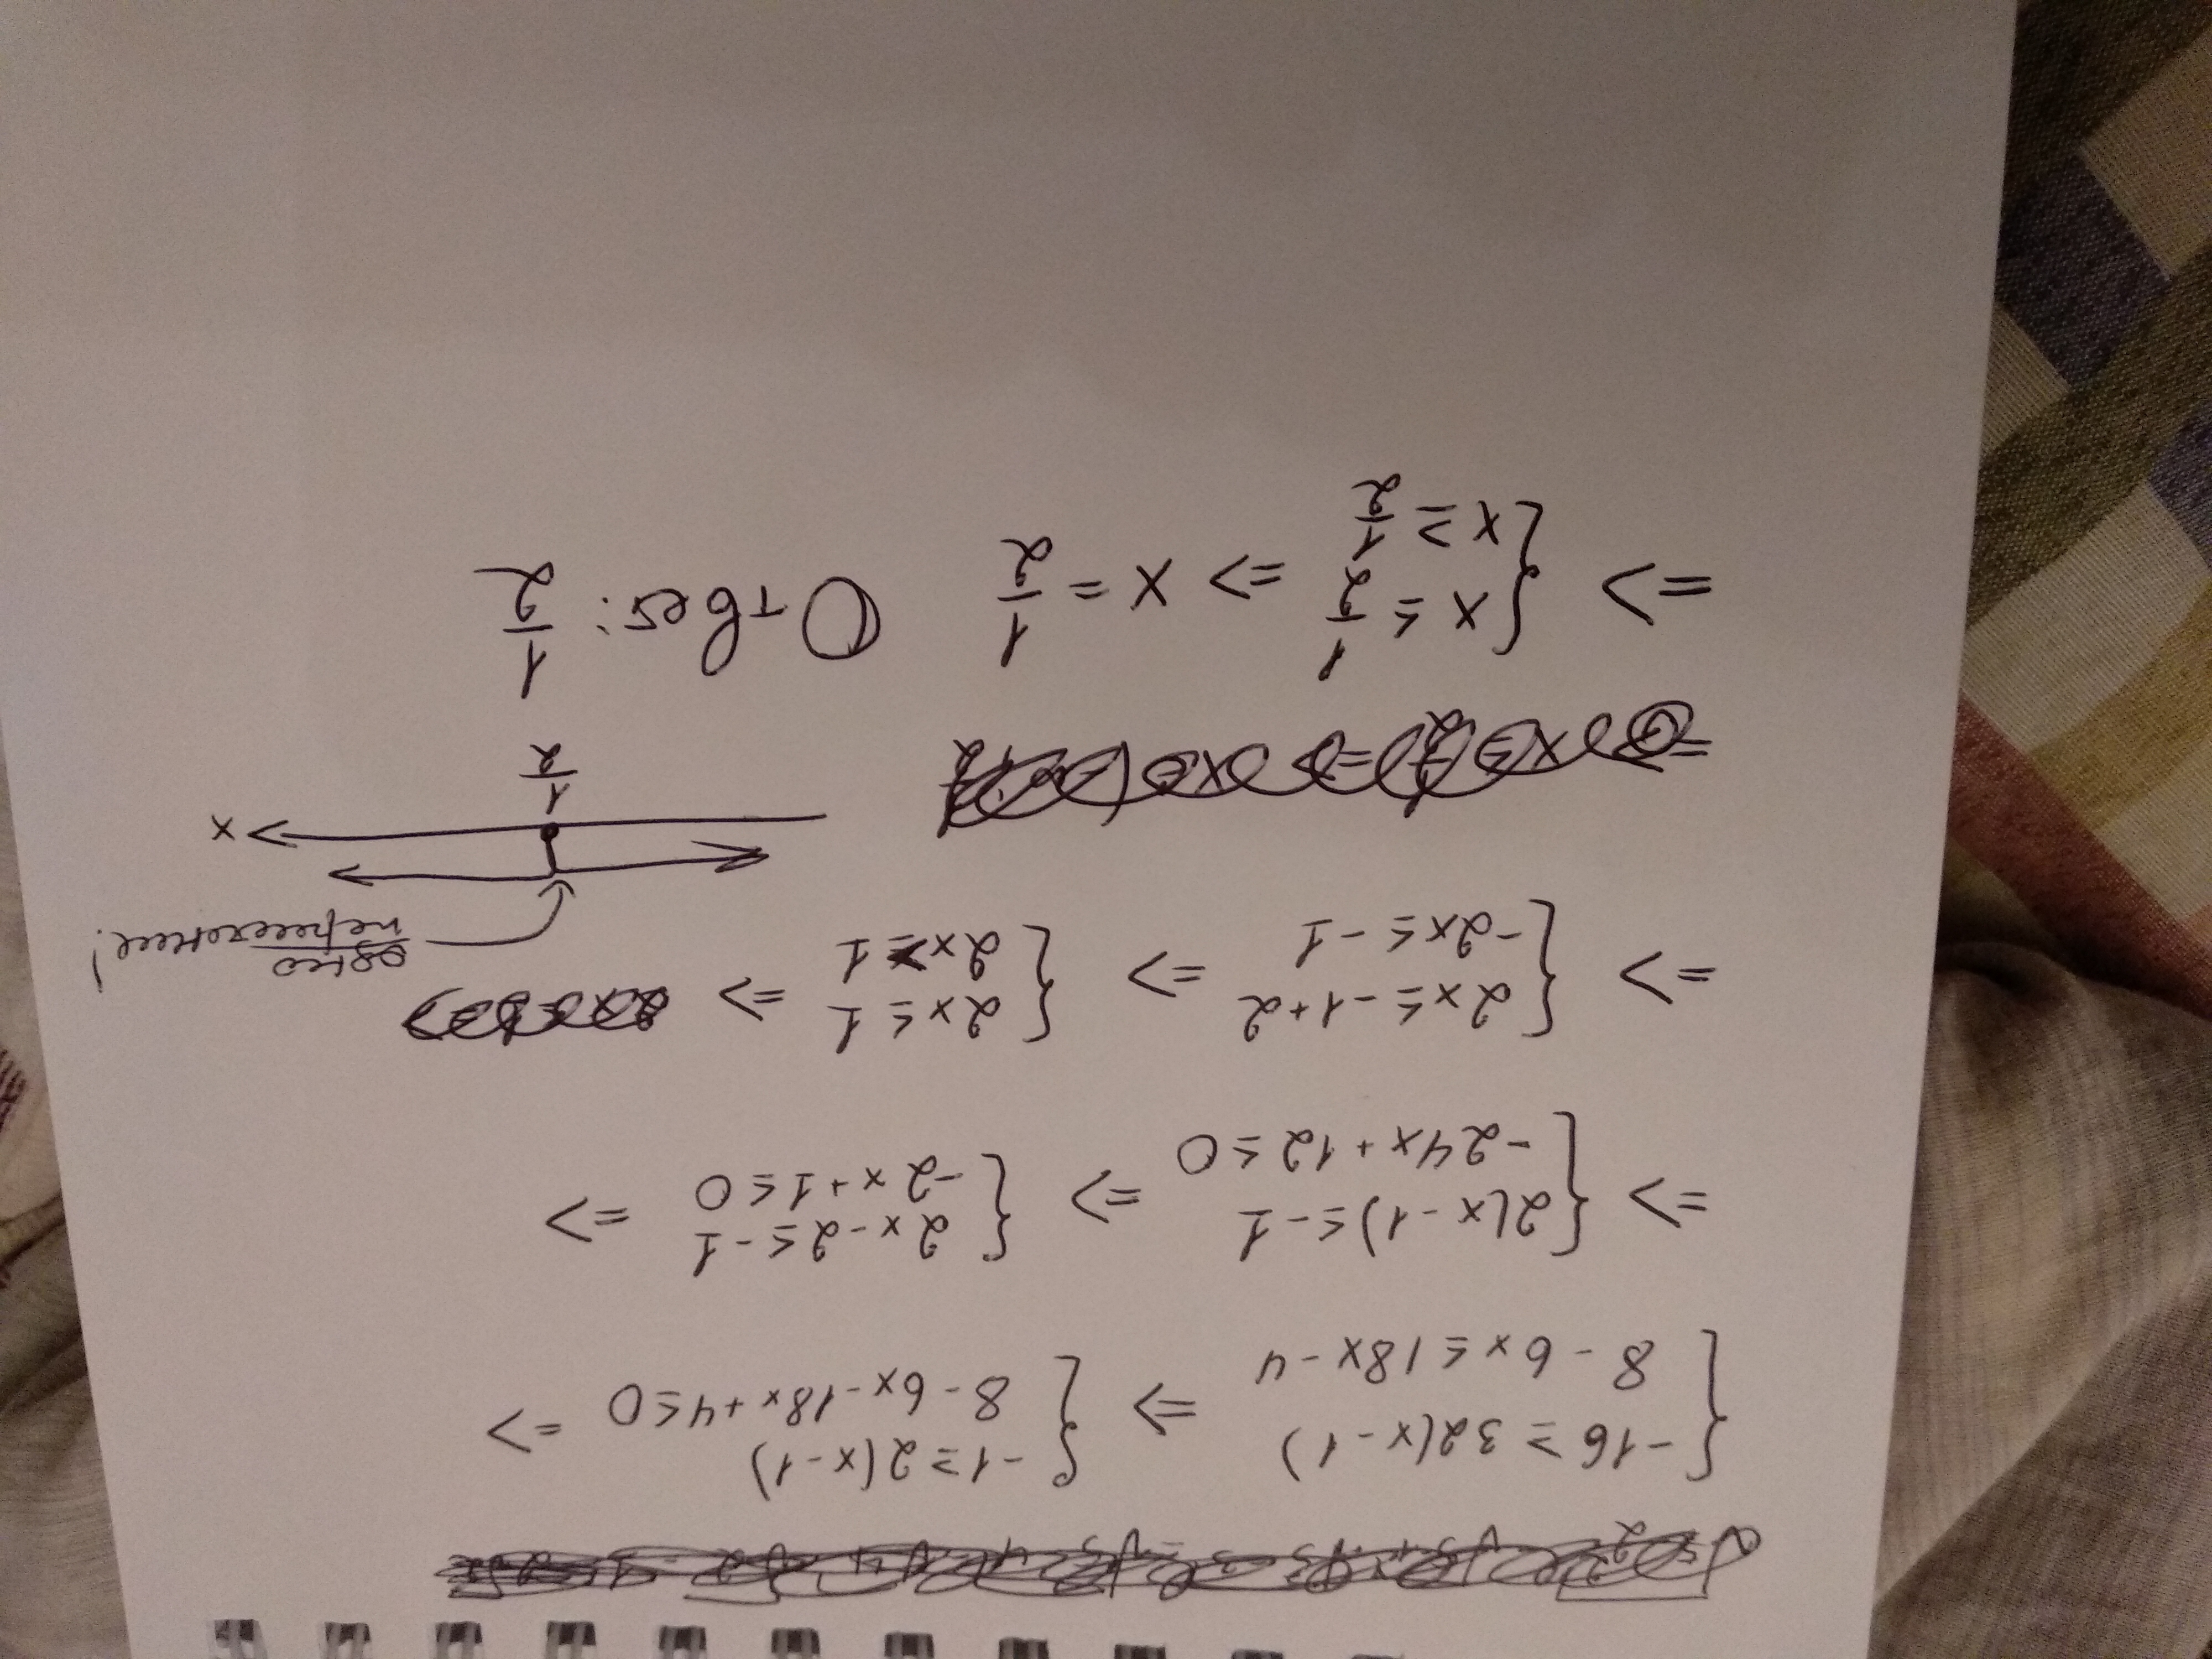 { -16 ≥ 32(x-1) => { -1 ≥ 2(x-1)
8 - 6x ≤ 18x - 4 { 8 - 6x - 18x + 4 ≤ 0 =>
=> { 2(x-1) ≤ -1 => { 2x - 2 ≤ -1 =>
{ -24x + 12 ≤ 0 { -2x + 1 ≤ 0
=> { 2x ≤ -1+2 => { 2x ≤ 1 =>
{ -2x ≤ -1 { 2x ≥ 1
одно
пересечение!
x
1/2
=> { x ≤ 1/2 => x = 1/2 Ответ: 1/2
{ x ≥ 1/2